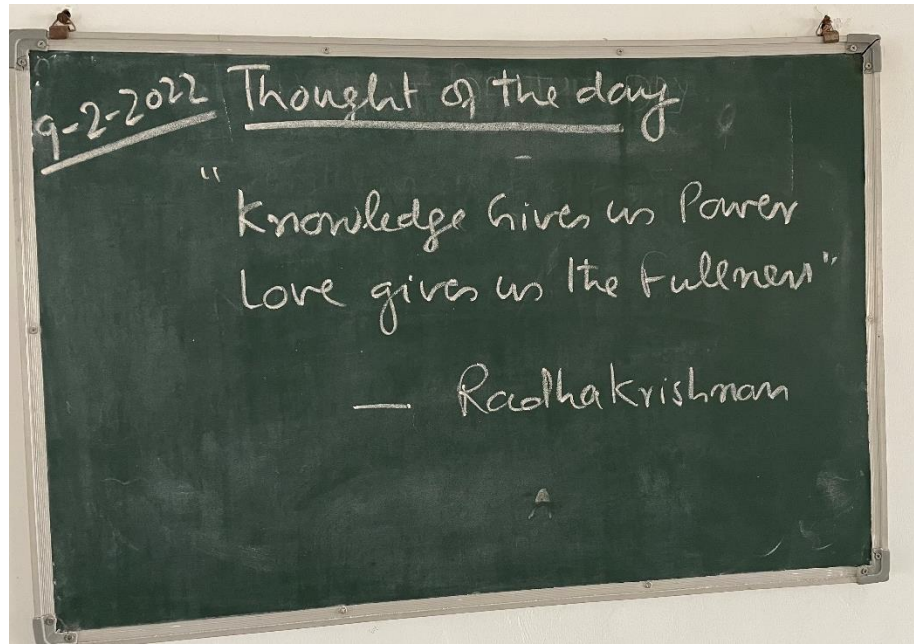 9-2-2022 Thought of the day
"Knowledge Gives us Power
Love gives us the Fullness"
— Radhakrishnan